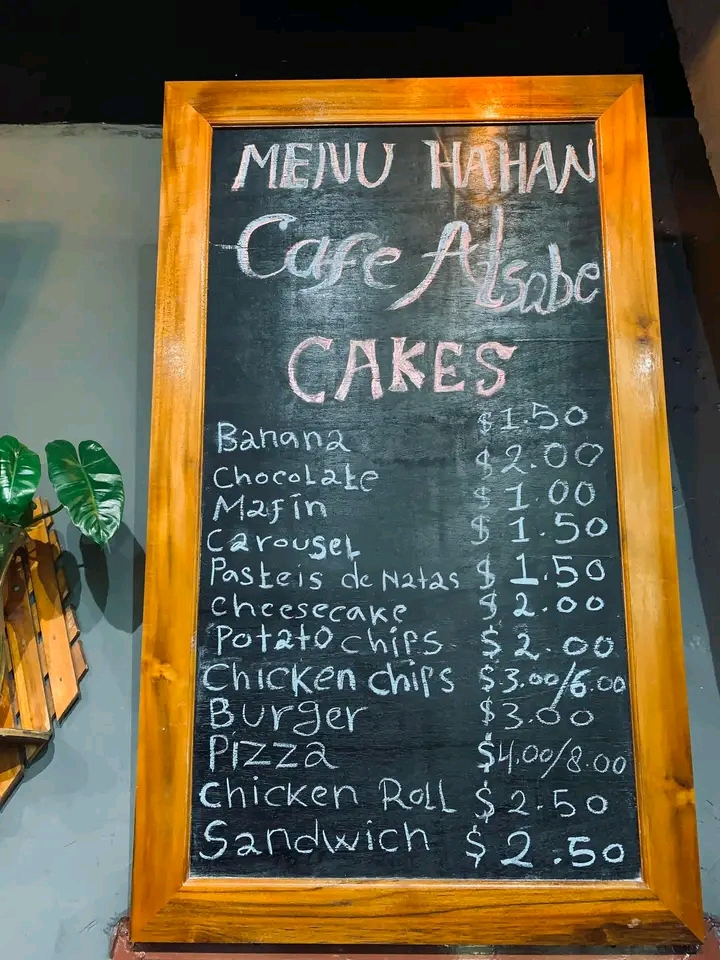 MENU HAHAN
Cafe Alsabe
CAKES
Banana $1.50
Chocolate $2.00
Mafin $1.00
Carousel $1.50
Pasteis de Natas $1.50
cheesecake $2.00
Potato chips $2.00
Chicken chips $3.00/6.00
Burger $3.00
Pizza $4.00/8.00
chicken Roll $2.50
Sandwich $2.50